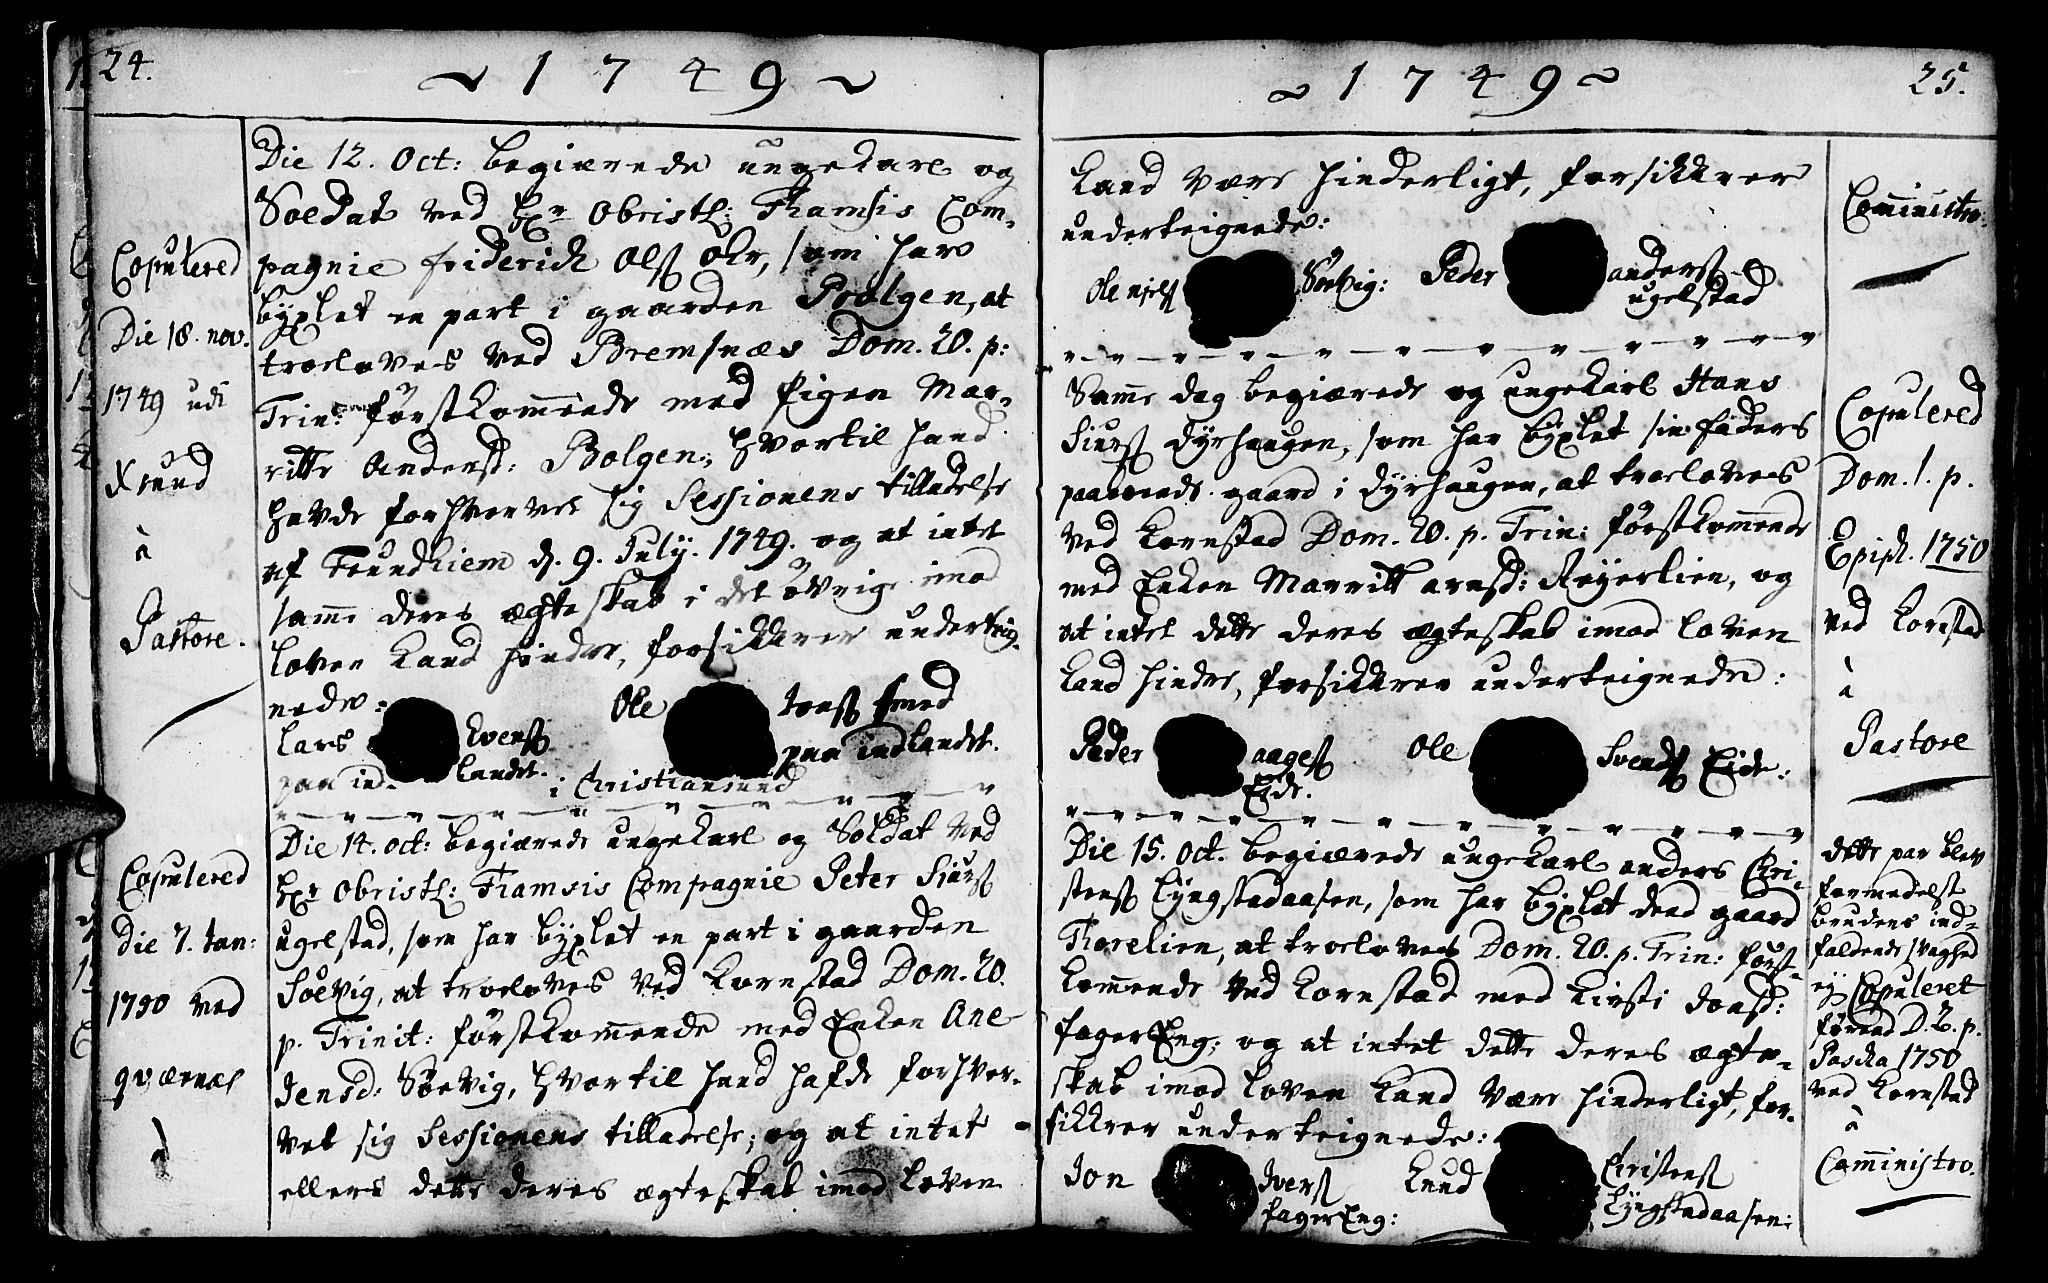 24.
~ 1 7 4 9 ~
Copulered
Die 18. nov.
1749 udi
Xsund
à
Pastore.
Die 12. Oct: begiærede ungekarl og
Soldat ved Hr Obristl: Thamsis Com-
pagnie friderich Olss Okr, som har
byxlet en part i gaarden Prolgen, at
troeloves ved Bremsnæs Dom. 20. p:
Trin: førstkommende med Pigen Mar-
ritte Andersd: Bolgen; hvortil hand
havde forhvervet sig Sessionens tilladelse
af Trundhiem d. 9. July. 1749. og at intet
samme deres ægteskab i det øvrige imod
loven kand hindre, forsikkrer underteig-
nede:
Lars Evenss
paa ind- landet.
Ole Jonss smed
paa indlandet.
i Christiansund
Copulered
Die 7. Jan:
1750 ved
qværnæs
à
Die 14. oct: begiærede ungekarl og Soldat ved
Hr Obristl: Thamsis Compagnie Peter Siurss
ugelstad, som har byxlet en part i gaarden
Solvig, at troeloves ved Kornstad Dom. 20.
p. Trinit: førstkommende med Enken Ane
Jensd: Sølvig, hvortil hand hafde forhver-
vet sig Sessionens tilladelse; og at intet
ellers dette deres ægteskab imod Loven
~ 1 7 4 9 ~
25.
kand være hinderligt, forsikkrer
underteignede:
Ole njelss Sølvig: Peder anderss
ugelstad
Comministro:
Samme dag begiærede og ungekarl Hans
Siurss Dyrhaugen, som har byxlet sin faders
paaboende gaard i Dyrhaugen, at troeloves
ved Kornstad Dom. 20. p. Trin: førstkommende
med Enken Marritt arnsd: Røyerlien, og
at intet dette deres ægteskab imod Loven
kand hindre, forsikkrer underteignede:
Peder aagess
Eide.
Ole Svends Eide:
Copulered
Dom. 1. p.
Epiph. 1750
ved Kornstad
à
Pastore
Die 15. Oct. begiærede ungekarl anders Chri-
stenss Lyngstadaasen, som har byxlet dend gaard
Thorelien, at troeloves Dom. 20. p. Trin: først-
kommende ved Kornstad med Kirsti Joensd:
fagerEng; og at intet dette deres ægte-
skab imod Loven kand være hinderligt, for-
sikkrer underteignede:
Jon Iverss
fagerEng:
Knud Christenss
Lyngstadaasen:
dette par blev
formedelst
brudens ind-
faldende svaghed
ej Copuleret
førend D. 2. p.
Pascha 1750
ved Kornstad
à
Comministro.